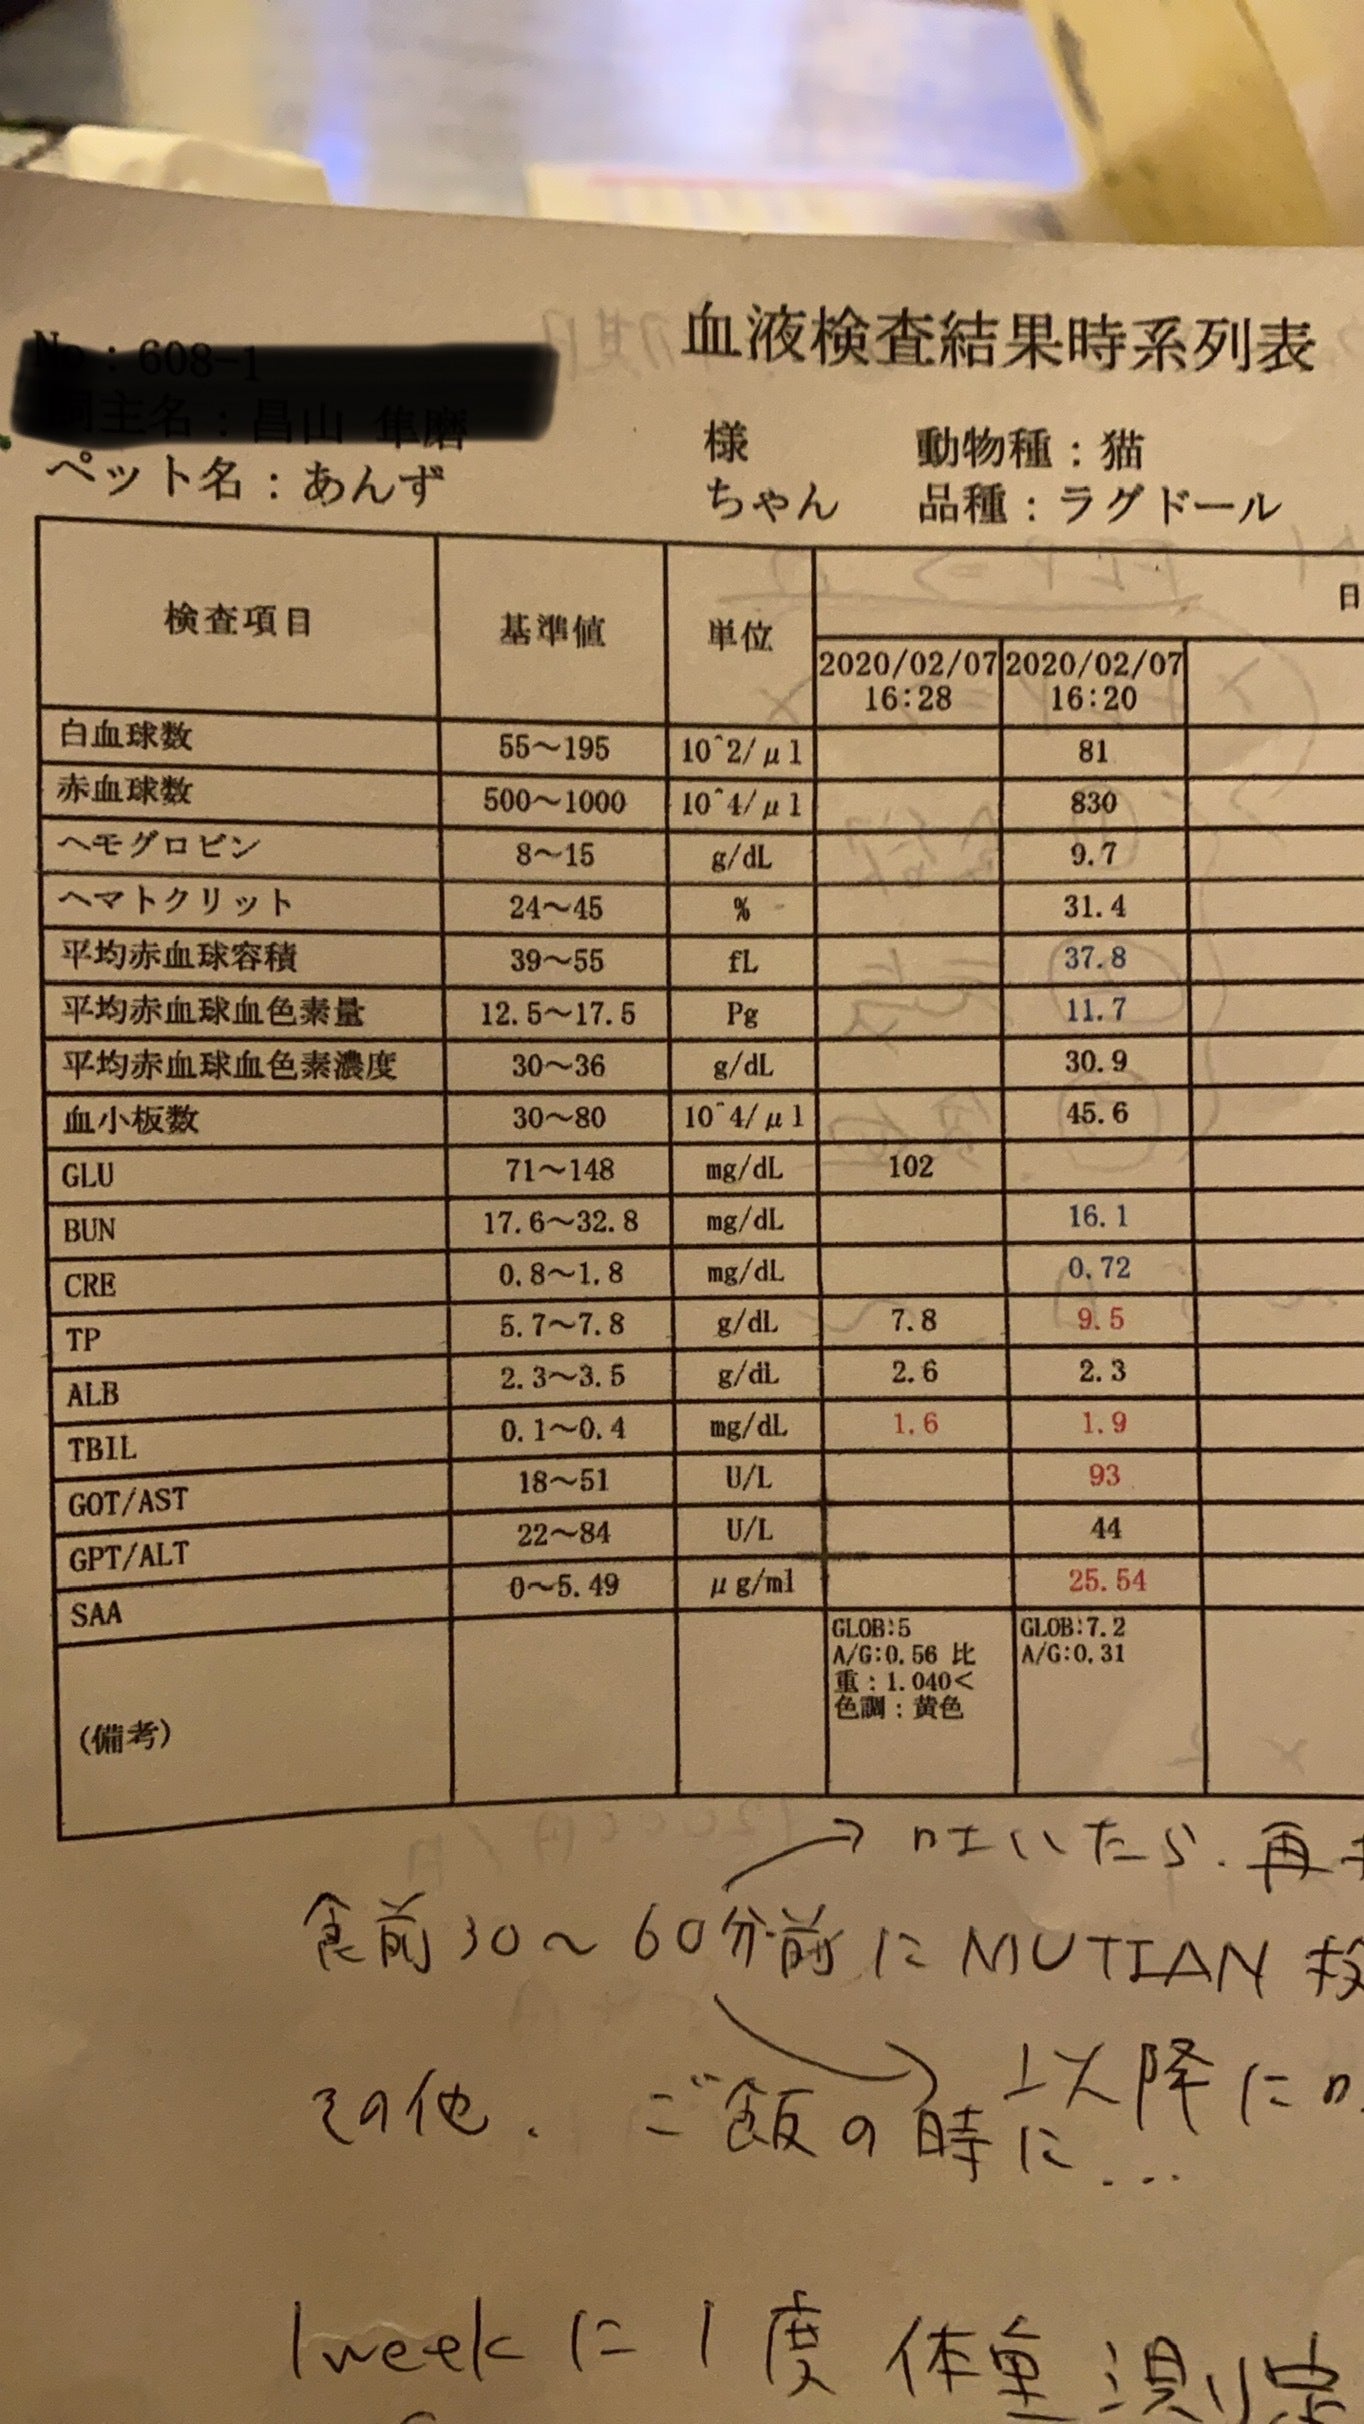 血液検査結果時系列表
様 動物種：猫
ペット名：あんず ちゃん 品種：ラグドール
検査項目 基準値 単位 日
2020/02/07 16:28 2020/02/07 16:20
白血球数 55～195 10^2/μl 81
赤血球数 500～1000 10^4/μl 830
ヘモグロビン 8～15 g/dL 9.7
ヘマトクリット 24～45 % 31.4
平均赤血球容積 39～55 fL 37.8
平均赤血球血色素量 12.5～17.5 Pg 11.7
平均赤血球血色素濃度 30～36 g/dL 30.9
血小板数 30～80 10^4/μl 45.6
GLU 71～148 mg/dL 102
BUN 17.6～32.8 mg/dL 16.1
CRE 0.8～1.8 mg/dL 0.72
TP 5.7～7.8 g/dL 7.8 9.5
ALB 2.3～3.5 g/dL 2.6 2.3
TBIL 0.1～0.4 mg/dL 1.6 1.9
GOT/AST 18～51 U/L 93
GPT/ALT 22～84 U/L 44
SAA 0～5.49 μg/ml 25.54
(備考)
GLOB:5
A/G:0.56 比
重：1.040<
色調：黄色
GLOB:7.2
A/G:0.31
→ 吐いたら、再
食前30～60分前に MUTIAN 投
以降に
その他. ご飯の時に...
1weekに1度 体重測定